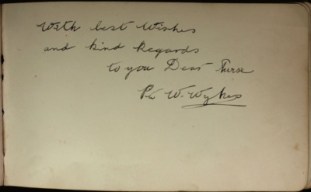 With best Wishes
and kind Regards
to you Dear Nurse
W. Wykes